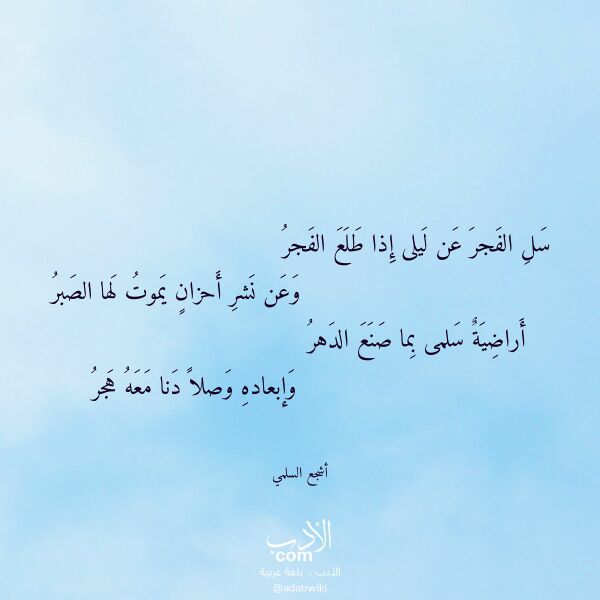 سَلِ الفَجرَ عَن لَيلى إِذا طَلَعَ الفَجرُ
وَعَن نَشرِ أَحزانٍ يَموتُ لَها الصَبرُ
أَراضِيَةٌ سَلمى بِما صَنَعَ الدَهرُ
وَإِبعادهِ وَصلاً دَنا مَعَهُ هَجرُ
أشجع السلمي
الأدب
com
الأدب .. بلغة عربية
@adabwiki